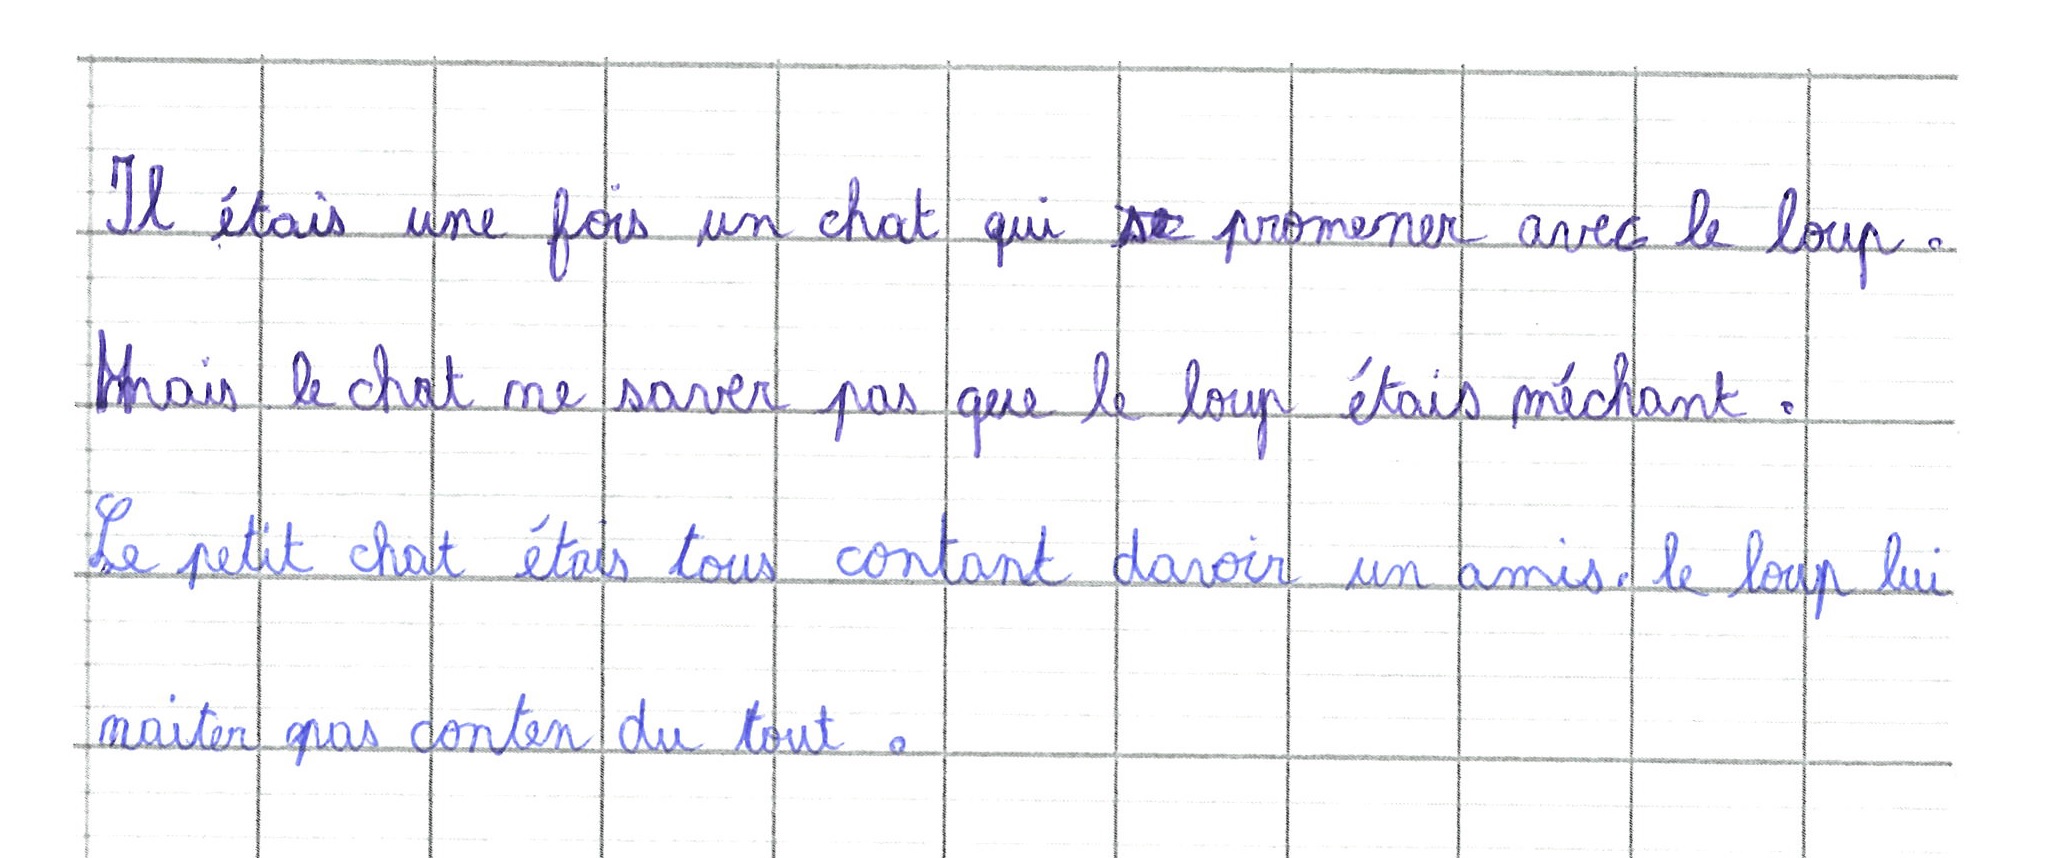 Il étais une fois un chat qui se promener avec le loup.
Mais le chat ne saver pas que le loup étais méchant.
Le petit chat étais tous contant davoir un amis. le loup lui
naiter pas conten du tout.